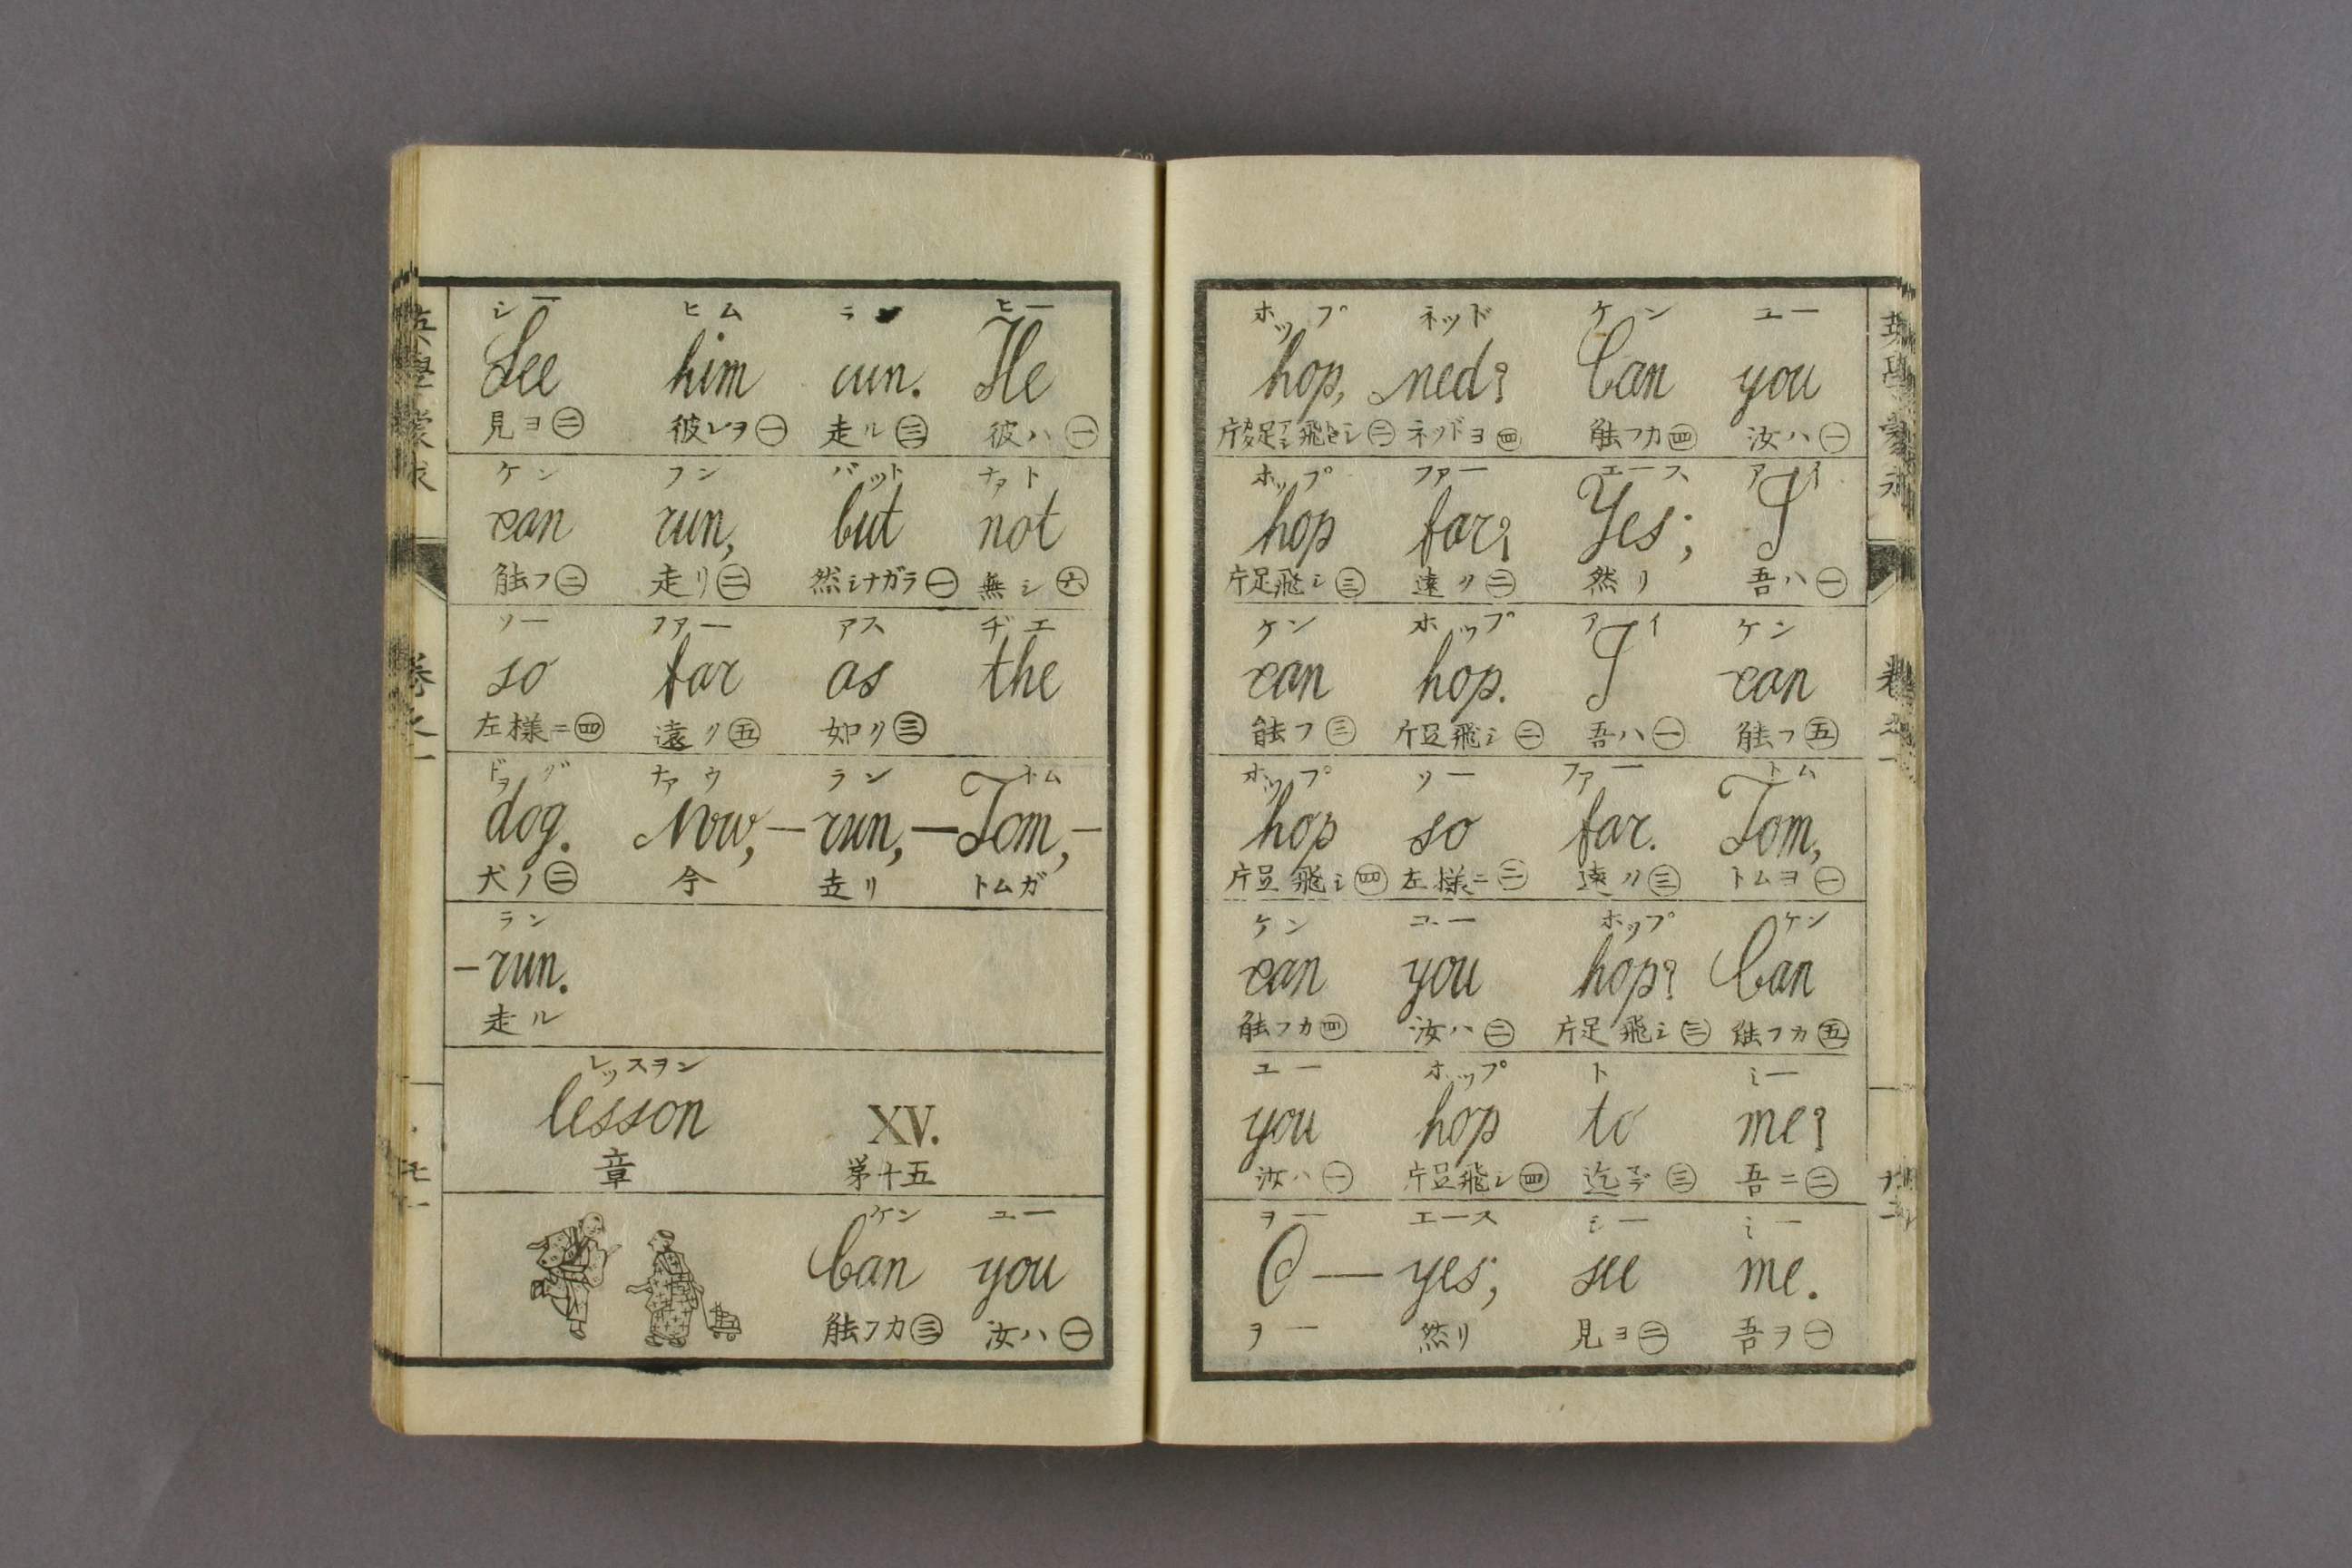 シー ヒム ラン ヒー
See him run. He
見ヨ㊁ 彼レヲ㊀ 走ル㊂ 彼ハ㊀
ケン フン バット ナァト
can run, but not
能フ㊁ 走リ㊁ 然シナガラ㊀ 無シ㊅
ソー ファー アス ヂエ
so far as the
左様ニ㊃ 遠ク㊄ 如ク㊂
ドヲグ ナァウ ラン トム
dog. Now,—run,—Tom,—
犬ノ㊁ 今 走リ トムガ
ラン
—run.
走ル
レッスヲン
lesson XV.
章 第十五
ケン ユー
Can you
能フカ㊂ 汝ハ㊀
ホップ ネッド ケン ユー
hop, ned? Can you
片足飛ヒシ㊁ ネッドヨ㊃ 能フカ㊃ 汝ハ㊀
ホップ ファー エース アイ
hop far? Yes; I
片足飛シ㊂ 遠ク㊁ 然リ 吾ハ㊀
ケン ホップ アイ ケン
can hop. I can
能フ㊂ 片足飛シ㊁ 吾ハ㊀ 能フ㊄
ホップ ソー ファー トム
hop so far. Tom,
片足飛シ㊃ 左様ニ㊁ 遠ク㊂ トムヨ㊀
ケン ユー ホップ ケン
can you hop? Can
能フカ㊃ 汝ハ㊁ 片足飛シ㊂ 能フカ㊄
ユー ホップ ト ミー
you hop to me?
汝ハ㊀ 片足飛シ㊃ 迄マデ㊂ 吾ニ㊁
ヲー エース シー ミー
O— yes; see me.
ヲー 然リ 見ヨ㊁ 吾ヲ㊀